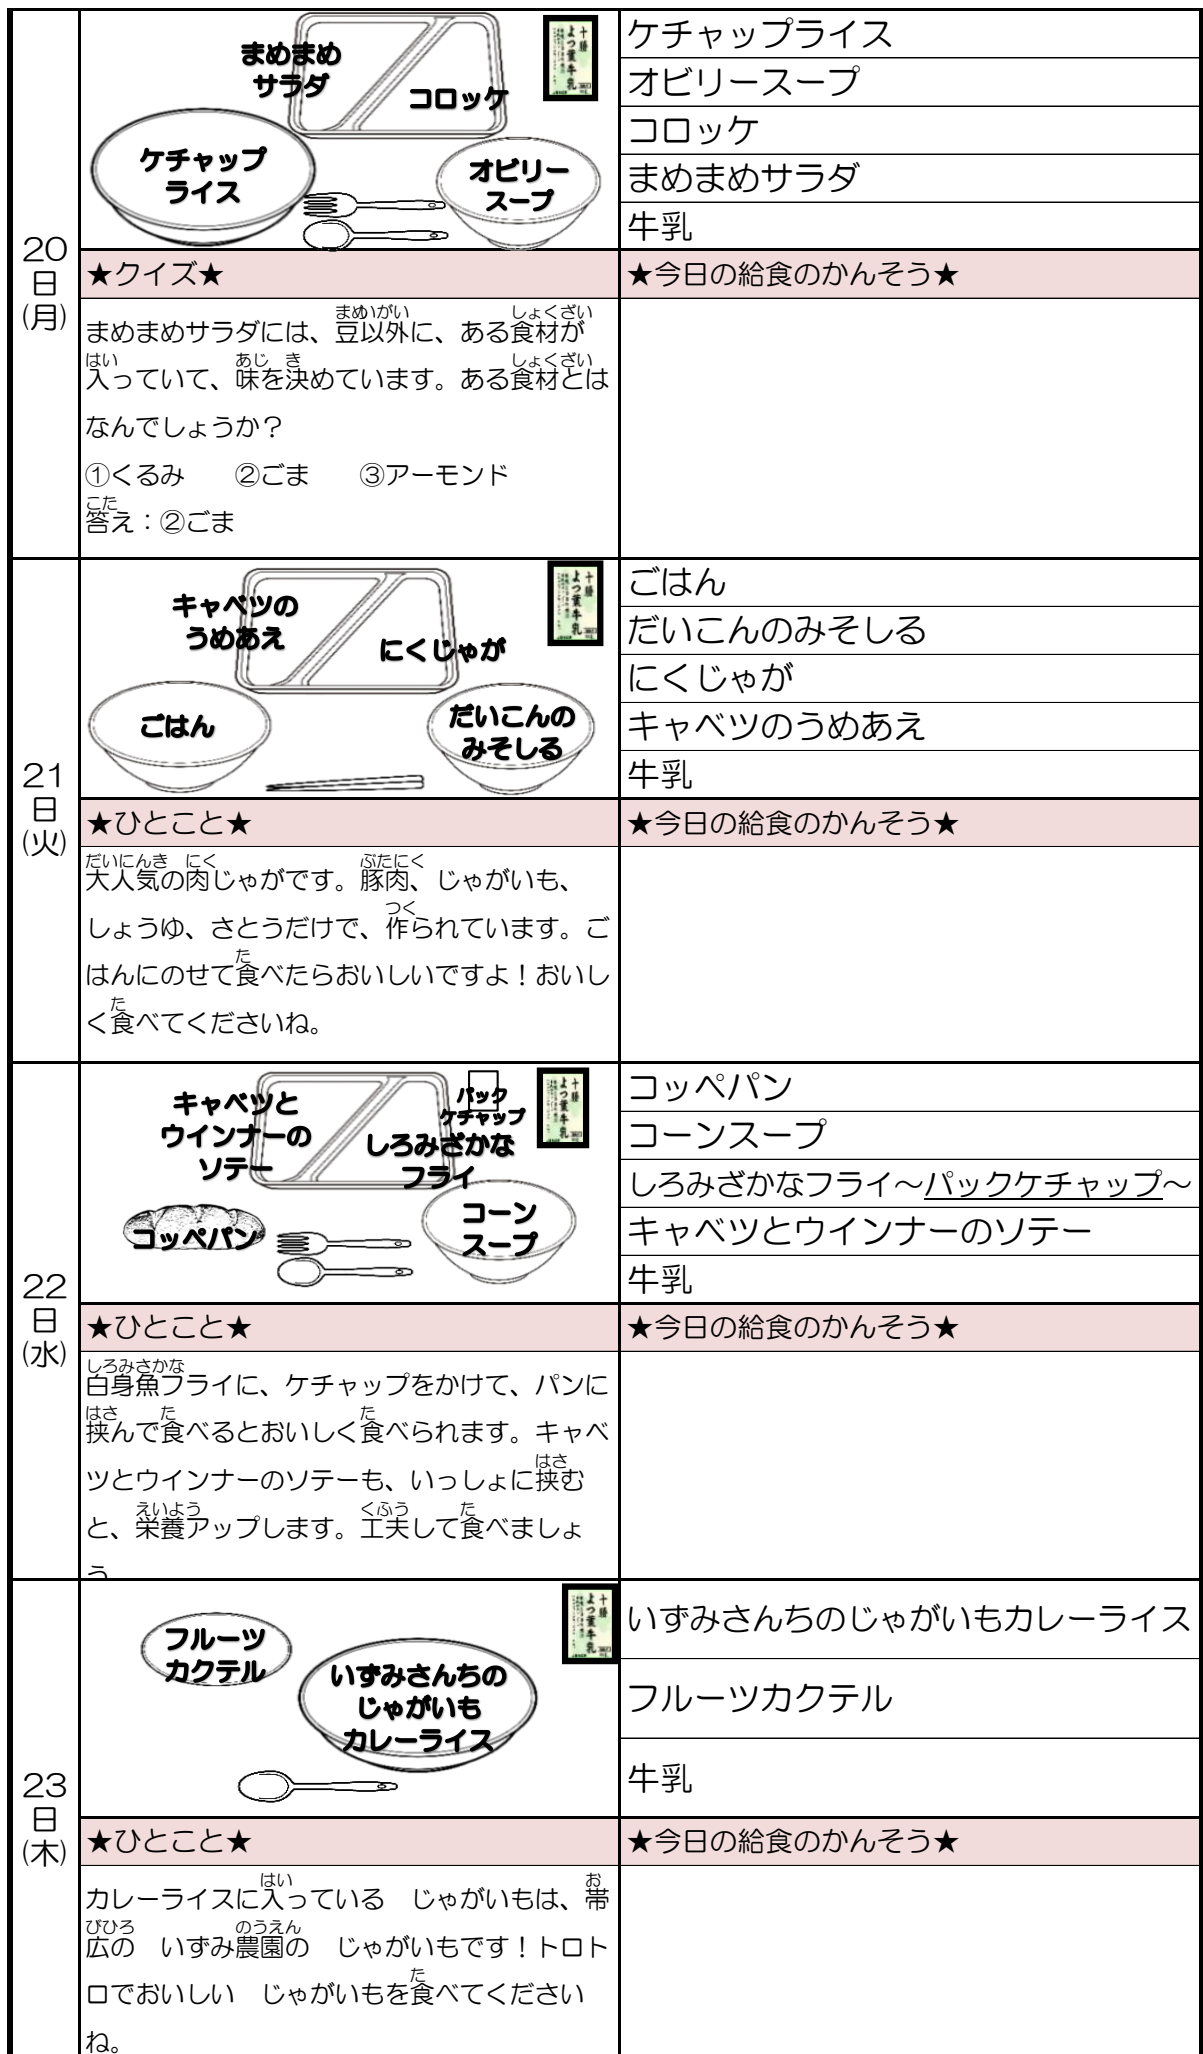 20
日
(月)
まめまめ
サラダ
コロッケ
ケチャップ
ライス
オビリー
スープ
十勝
よつ葉牛乳
ケチャップライス
オビリースープ
コロッケ
まめまめサラダ
牛乳
★クイズ★
★今日の給食のかんそう★
まめまめサラダには、豆以外に、ある食材が
入っていて、味を決めています。ある食材とは
なんでしょうか？
①くるみ　②ごま　③アーモンド
答え：②ごま
21
日
(火)
キャベツの
うめあえ
にくじゃが
ごはん
だいこんの
みそしる
十勝
よつ葉牛乳
ごはん
だいこんのみそしる
にくじゃが
キャベツのうめあえ
牛乳
★ひとこと★
★今日の給食のかんそう★
大人気の肉じゃがです。豚肉、じゃがいも、
しょうゆ、さとうだけで、作られています。ご
はんにのせて食べたらおいしいですよ！おいし
く食べてくださいね。
22
日
(水)
キャベツと
ウインナーの
ソテー
パック
ケチャップ
しろみざかな
フライ
コッペパン
コーン
スープ
十勝
よつ葉牛乳
コッペパン
コーンスープ
しろみざかなフライ～パックケチャップ～
キャベツとウインナーのソテー
牛乳
★ひとこと★
★今日の給食のかんそう★
白身魚フライに、ケチャップをかけて、パンに
挟んで食べるとおいしく食べられます。キャベ
ツとウインナーのソテーも、いっしょに挟む
と、栄養アップします。工夫して食べましょ
う
23
日
(木)
フルーツ
カクテル
いずみさんちの
じゃがいも
カレーライス
十勝
よつ葉牛乳
いずみさんちのじゃがいもカレーライス
フルーツカクテル
牛乳
★ひとこと★
★今日の給食のかんそう★
カレーライスに入っている　じゃがいもは、帯
広の　いずみ農園の　じゃがいもです！トロト
ロでおいしい　じゃがいもを食べてください
ね。